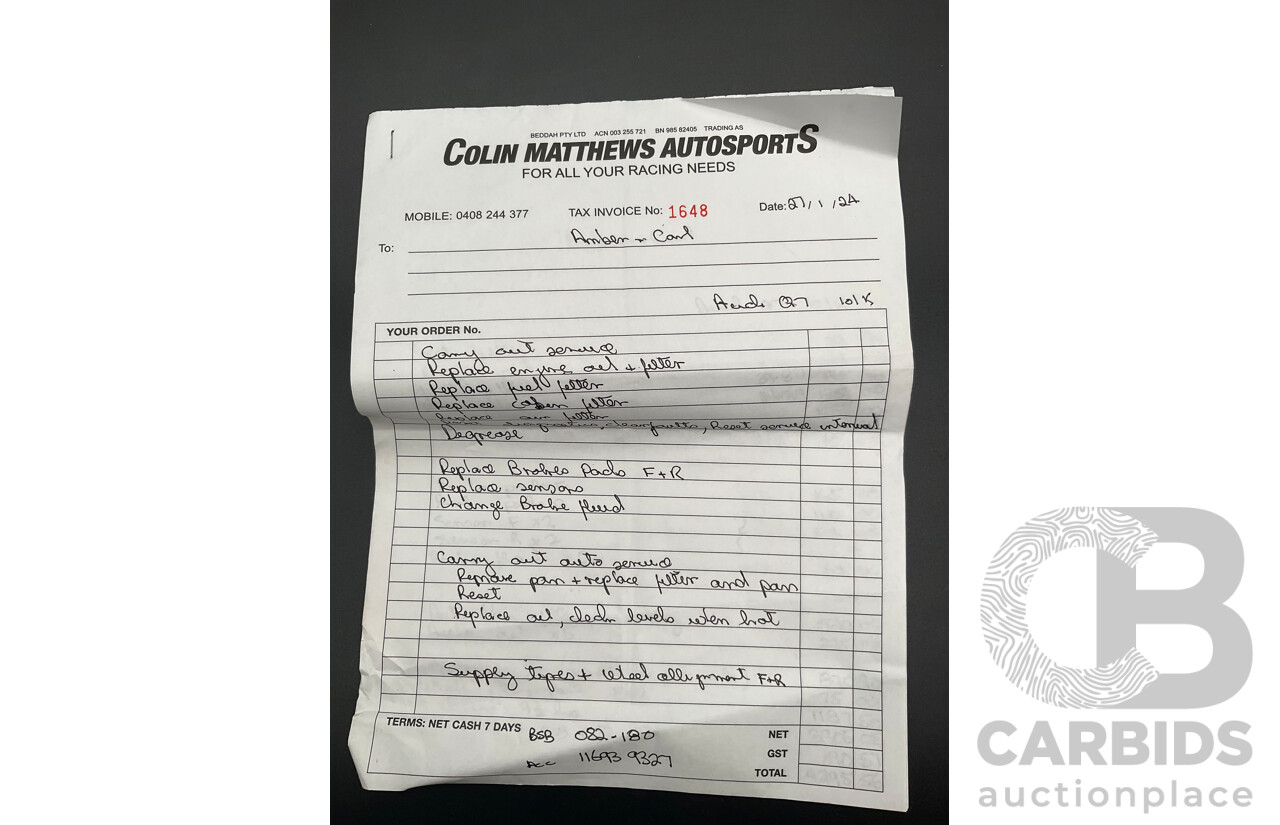 BEDDAH PTY LTD ACN 003 255 721 BN 985 82405 TRADING AS
COLIN MATTHEWS AUTOSPORTS
FOR ALL YOUR RACING NEEDS
MOBILE: 0408 244 377 TAX INVOICE No: 1648 Date: 27/1/24
To: Amber + Carl
Audi Q7
YOUR ORDER No.
Carry out service
Replace engine oil + filter
Replace fuel filter
Replace cabin filter
Replace air filter
clear faults, Reset service interval
Degrease
Replace Brakes Pads F+R
Replace sensors
Change Brake fluid
Carry out auto service
Remove pan + replace filter and pan
Reset
Replace oil, check levels when hot
Supply tyres + wheel allignment F+R
TERMS: NET CASH 7 DAYS BSB 082-180 NET
Acc 11693 9327 GST
TOTAL
CB
CARBIDS
auctionplace